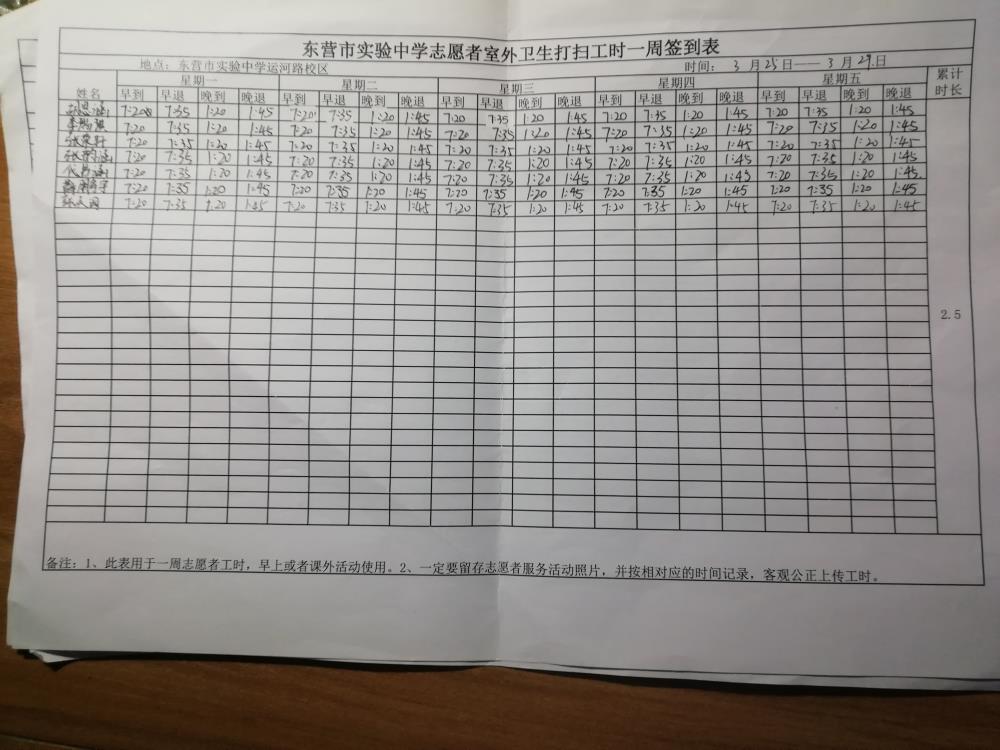 东营市实验中学志愿者室外卫生打扫工时一周签到表
地点：东营市实验中学运河路校区 时间： 3 月 25 日—— 3 月 29 日
姓名 星期一 星期二 星期三 星期四 星期五 累计时长
早到 早退 晚到 晚退 早到 早退 晚到 晚退 早到 早退 晚到 晚退 早到 早退 晚到 晚退 早到 早退 晚到 晚退
7:20 7:35 1:20 1:45 7:20 7:35 1:20 1:45 7:20 7:35 1:20 1:45 7:20 7:35 1:20 1:45 7:20 7:35 1:20 1:45
7:20 7:35 1:20 1:45 7:20 7:35 1:20 1:45 7:20 7:35 1:20 1:45 7:20 7:35 1:20 1:45 7:20 7:35 1:20 1:45
7:20 7:35 1:20 1:45 7:20 7:35 1:20 1:45 7:20 7:35 1:20 1:45 7:20 7:35 1:20 1:45 7:20 7:35 1:20 1:45
7:20 7:35 1:20 1:45 7:20 7:35 1:20 1:45 7:20 7:35 1:20 1:45 7:20 7:35 1:20 1:45 7:20 7:35 1:20 1:45
7:20 7:35 1:20 1:45 7:20 7:35 1:20 1:45 7:20 7:35 1:20 1:45 7:20 7:35 1:20 1:45 7:20 7:35 1:20 1:45
7:20 7:35 1:20 1:45 7:20 7:35 1:20 1:45 7:20 7:35 1:20 1:45 7:20 7:35 1:20 1:45 7:20 7:35 1:20 1:45
7:20 7:35 1:20 1:45 7:20 7:35 1:20 1:45 7:20 7:35 1:20 1:45 7:20 7:35 1:20 1:45 7:20 7:35 1:20 1:45
2.5
备注：1、此表用于一周志愿者工时，早上或者课外活动使用。2、一定要留存志愿者服务活动照片，并按相对应的时间记录，客观公正上传工时。